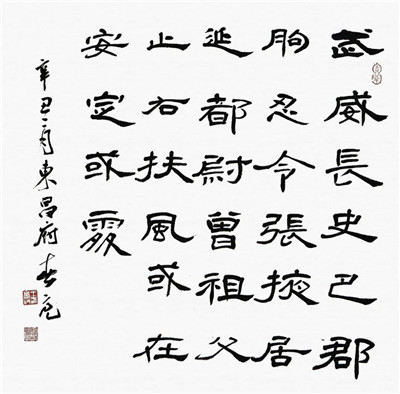 武威長史巴郡
朐忍令張掖居
延都尉曾祖父
止右扶風或在
安定或處
辛丑二月東昌府